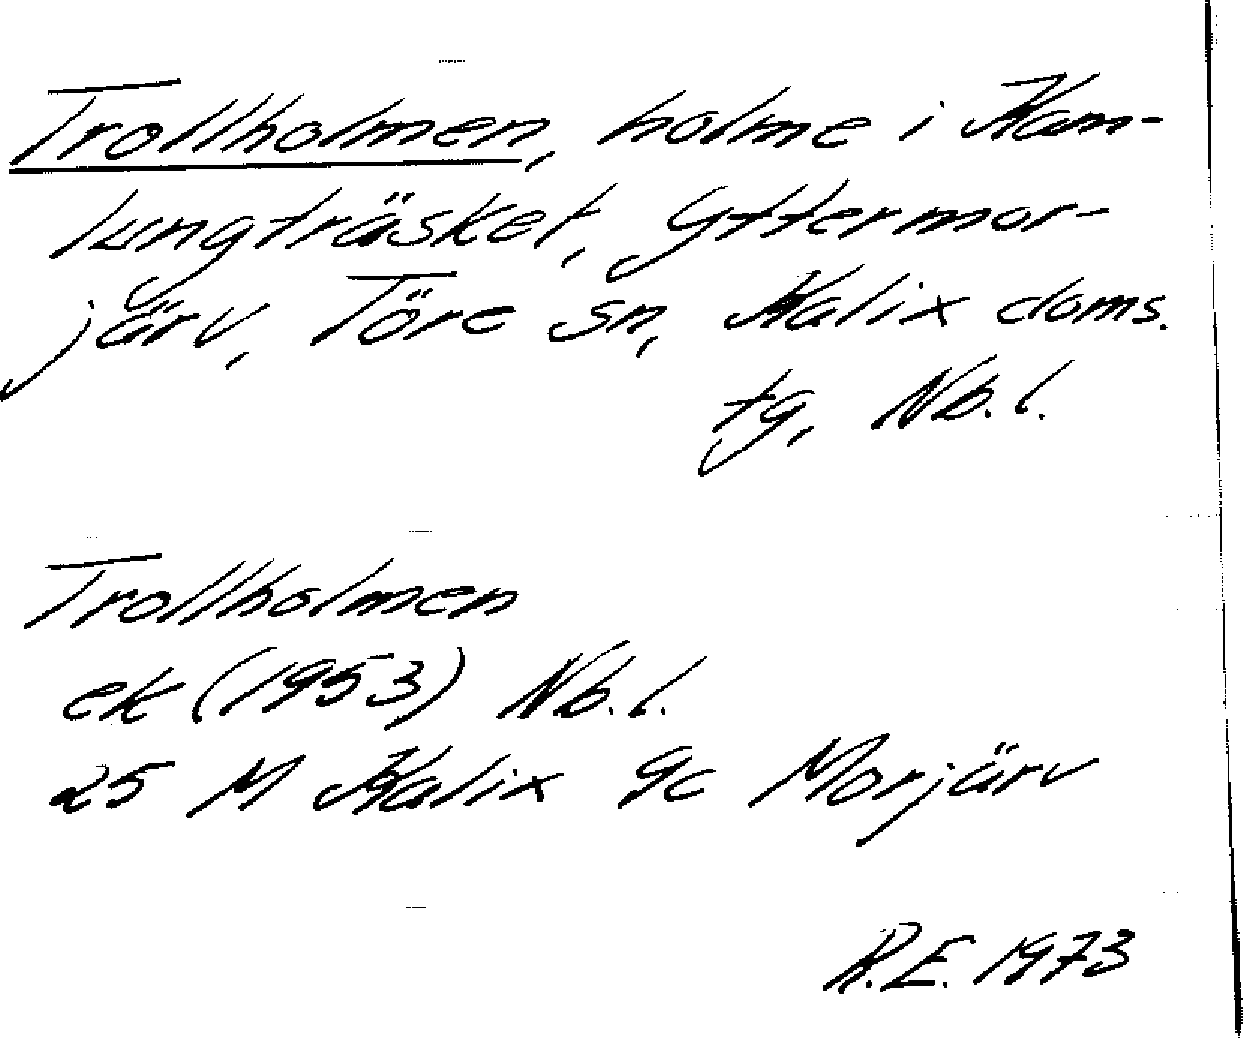 Trollholmen, holme i Kam-
lungträsket, Yttermor-
järv, Töre sn, Kalix doms.
tg, Nb. l.
Trollholmen
ek (1953) Nb. l.
25 M Kalix 9c Morjärv
R.E. 1973